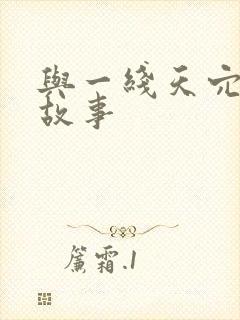 與一綫天宂
故事
簾霜.1